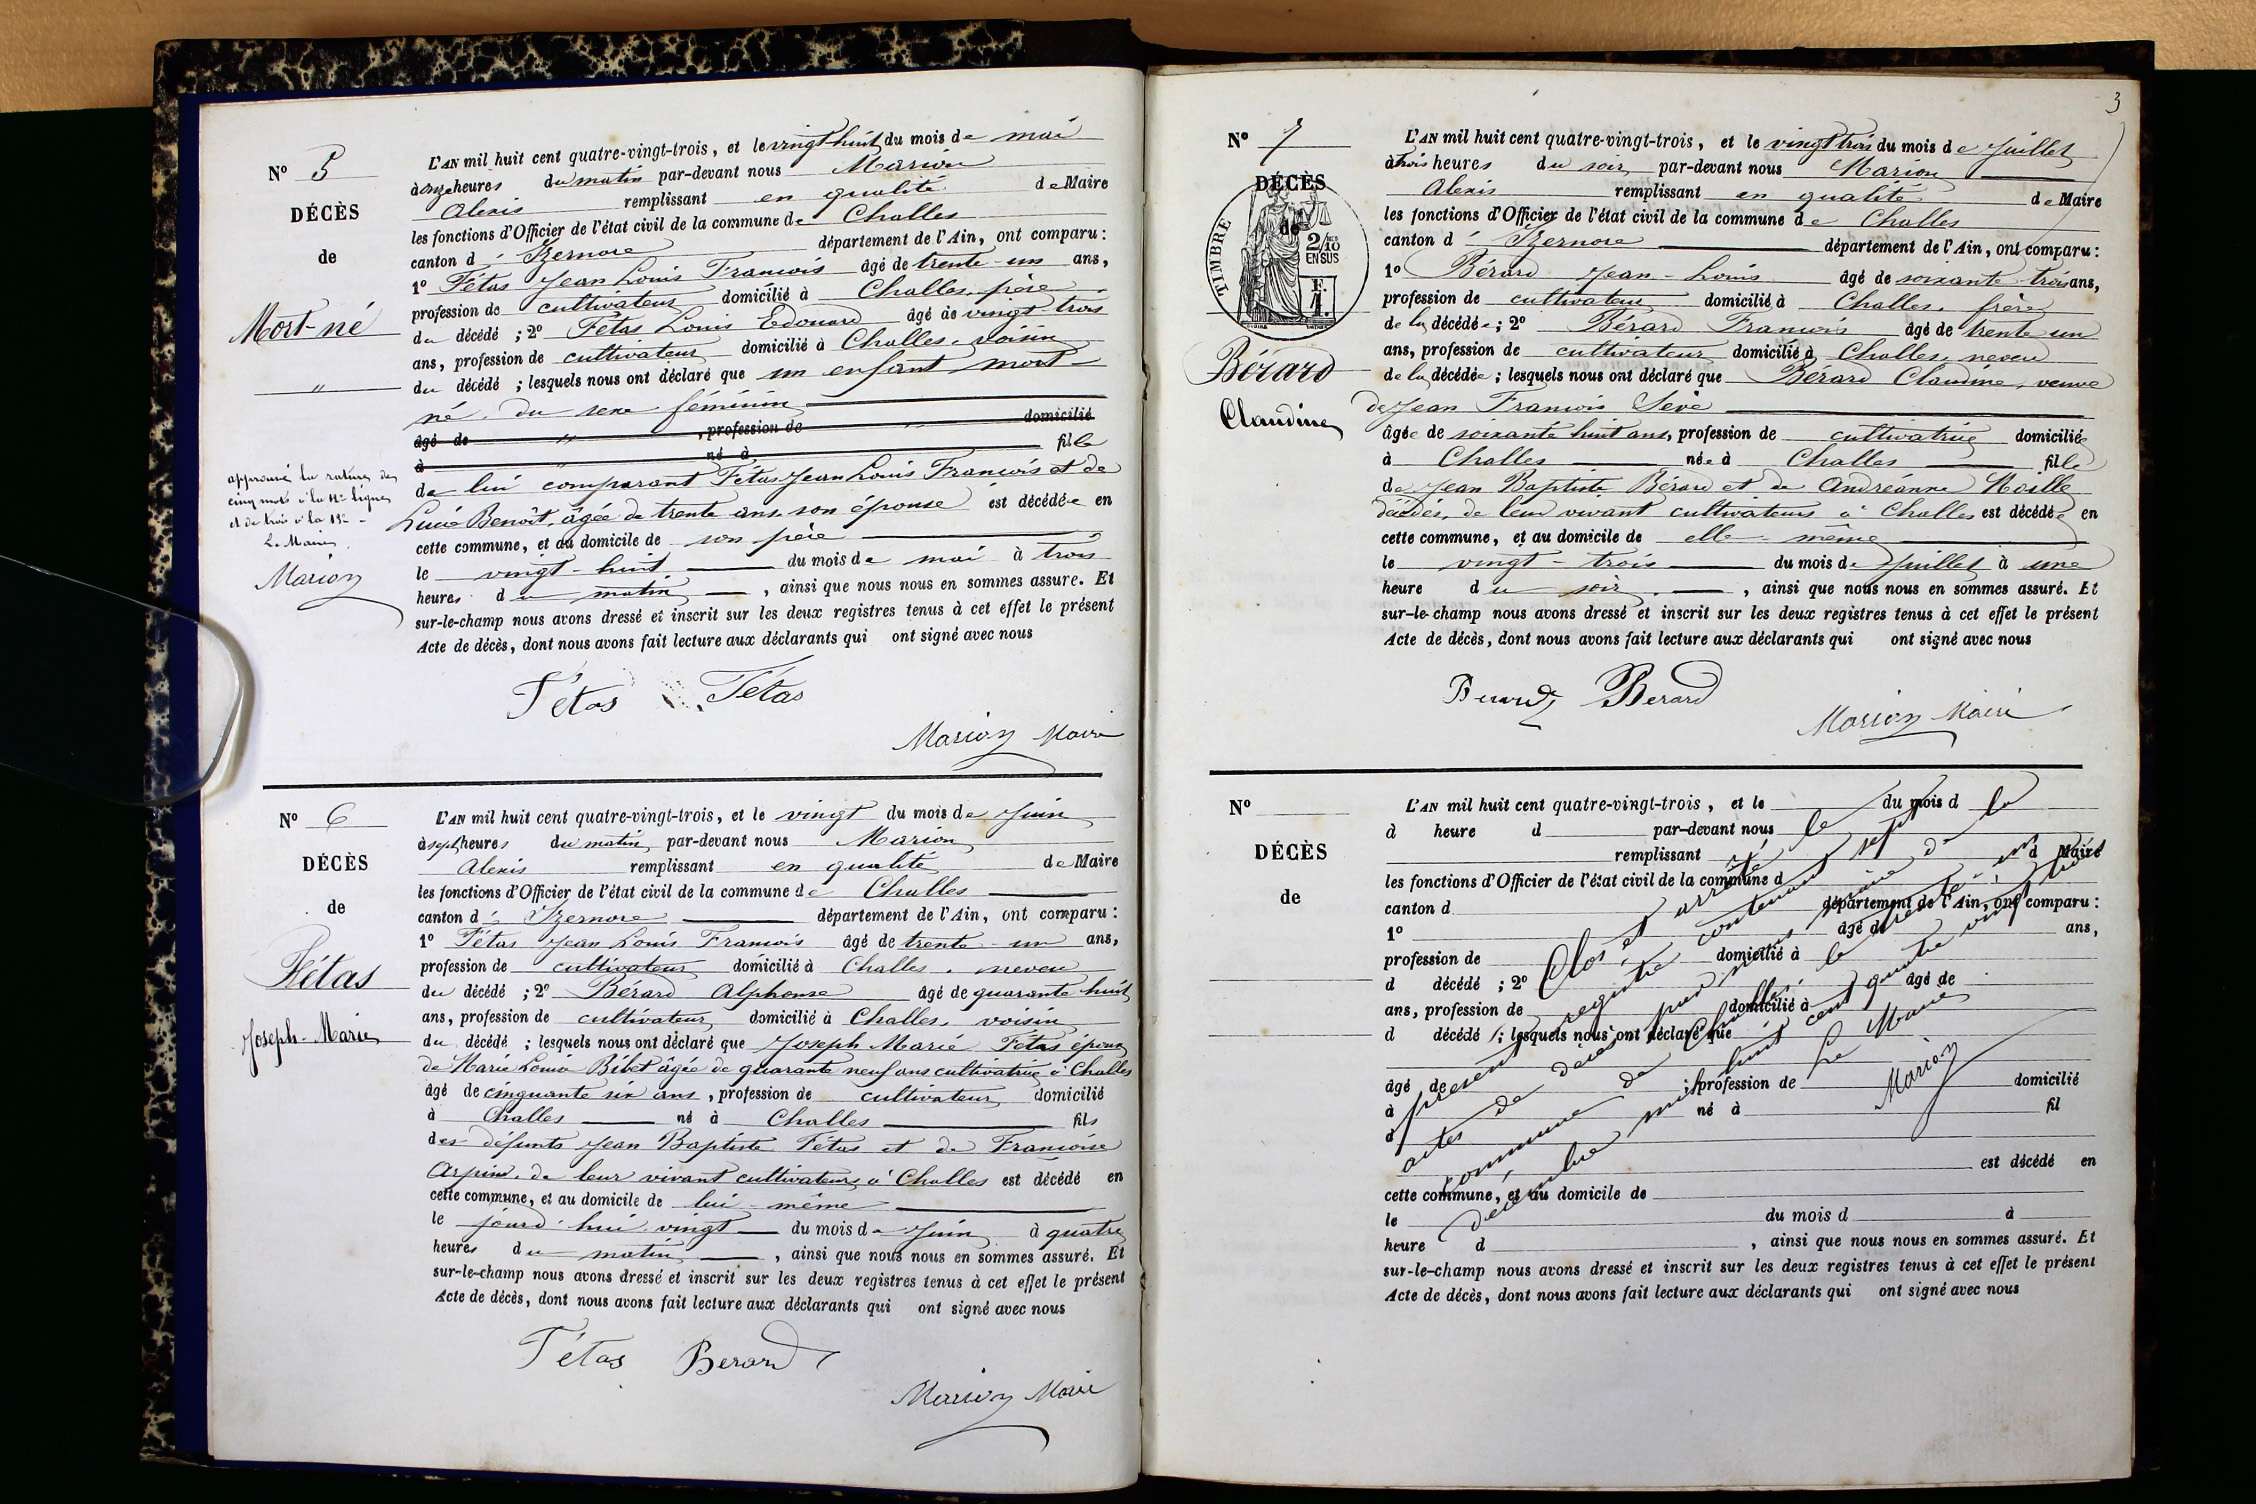 N° 5
DÉCÈS
de
Mort-né
"
approuvé la rature de
cinq mots à la 11e ligne
et de trois à la 12e
Le Maire
Marion
L'AN mil huit cent quatre-vingt-trois, et le vingt huit du mois de mai
à onze heures du matin par-devant nous Marion
Alexis remplissant en qualité de Maire
les fonctions d'Officier de l'état civil de la commune de Challes
canton d' Izernore département de l'Ain, ont comparu :
1° Fétas Jean Louis François âgé de trente-un ans,
profession de cultivateur domicilié à Challes, père
du décédé ; 2° Fétas Louis Edouard âgé de vingt-trois
ans, profession de cultivateur domicilié à Challes, voisin
du décédé ; lesquels nous ont déclaré que un enfant mort-
né, du sexe féminin
âgé de " , profession de " domicilié
à né à fille
de lui comparant Fétas Jean Louis François et de
Lucie Benoît, âgée de trente ans son épouse est décédée en
cette commune, et au domicile de son père
le vingt-huit du mois de mai à trois
heures du matin , ainsi que nous nous en sommes assuré. Et
sur-le-champ nous avons dressé et inscrit sur les deux registres tenus à cet effet le présent
Acte de décès, dont nous avons fait lecture aux déclarants qui ont signé avec nous
Fétas Fétas
Marion Maire
N° 6
DÉCÈS
de
Fétas
Joseph-Marie
L'AN mil huit cent quatre-vingt-trois, et le vingt du mois de Juin
à sept heures du matin par-devant nous Marion
Alexis remplissant en qualité de Maire
les fonctions d'Officier de l'état civil de la commune de Challes
canton d' Izernore département de l'Ain, ont comparu :
1° Fétas Jean Louis François âgé de trente-un ans,
profession de cultivateur domicilié à Challes, neveu
du décédé ; 2° Bérard Alphonse âgé de quarante huit
ans, profession de cultivateur domicilié à Challes, voisin
du décédé ; lesquels nous ont déclaré que Joseph Marie Fétas époux
de Marie Louise Bibet âgée de quarante neuf ans cultivatrice à Challes
âgé de cinquante six ans, profession de cultivateur domicilié
à Challes né à Challes fils
des défunts Jean Baptiste Fétas et de Françoise
Arpin, de leur vivant cultivateurs à Challes est décédé en
cette commune, et au domicile de lui-même
le jourd'hui vingt du mois de Juin à quatre
heures du matin , ainsi que nous nous en sommes assuré. Et
sur-le-champ nous avons dressé et inscrit sur les deux registres tenus à cet effet le présent
Acte de décès, dont nous avons fait lecture aux déclarants qui ont signé avec nous
Fétas Berard
Marion Maire
3
N° 7
DÉCÈS
de
TIMBRE
2/10
EN SUS
F.
1.
Bérard
Claudine
L'AN mil huit cent quatre-vingt-trois, et le vingt trois du mois de Juillet
à trois heures du soir par-devant nous Marion
Alexis remplissant en qualité de Maire
les fonctions d'Officier de l'état civil de la commune de Challes
canton d' Izernore département de l'Ain, ont comparu :
1° Bérard Jean-Louis âgé de soixante-trois ans,
profession de cultivateur domicilié à Challes, frère
de la décédée ; 2° Bérard François âgé de trente un
ans, profession de cultivateur domicilié à Challes, neveu
de la décédée ; lesquels nous ont déclaré que Bérard Claudine, veuve
de Jean François Sève
âgée de soixante huit ans, profession de cultivatrice domiciliée
à Challes née à Challes fille
de Jean Baptiste Bérard et de Andréanne
décédés, de leur vivant cultivateurs à Challes est décédée en
cette commune, et au domicile de elle-même
le vingt-trois du mois de Juillet à une
heure du soir , ainsi que nous nous en sommes assuré. Et
sur-le-champ nous avons dressé et inscrit sur les deux registres tenus à cet effet le présent
Acte de décès, dont nous avons fait lecture aux déclarants qui ont signé avec nous
Berard Berard
Marion Maire
N°
DÉCÈS
de
L'AN mil huit cent quatre-vingt-trois, et le du mois d
à heure d par-devant nous
remplissant d Maire
les fonctions d'Officier de l'état civil de la commune d
canton d département de l'Ain, ont comparu :
1° âgé de ans,
profession de domicilié à
d décédé ; 2° âgé de
ans, profession de domicilié à
d décédé ; lesquels nous ont déclaré que
âgé de , profession de domicilié
à né à fil
d
est décédé en
cette commune, et au domicile de
le du mois d à
heure d , ainsi que nous nous en sommes assuré. Et
sur-le-champ nous avons dressé et inscrit sur les deux registres tenus à cet effet le présent
Acte de décès, dont nous avons fait lecture aux déclarants qui ont signé avec nous
Clos et arrêté le
présent registre contenant sept
actes de décès par nous maire de la
commune de Challes le trente-un
décembre mil huit cent quatre vingt trois
Le Maire
Marion